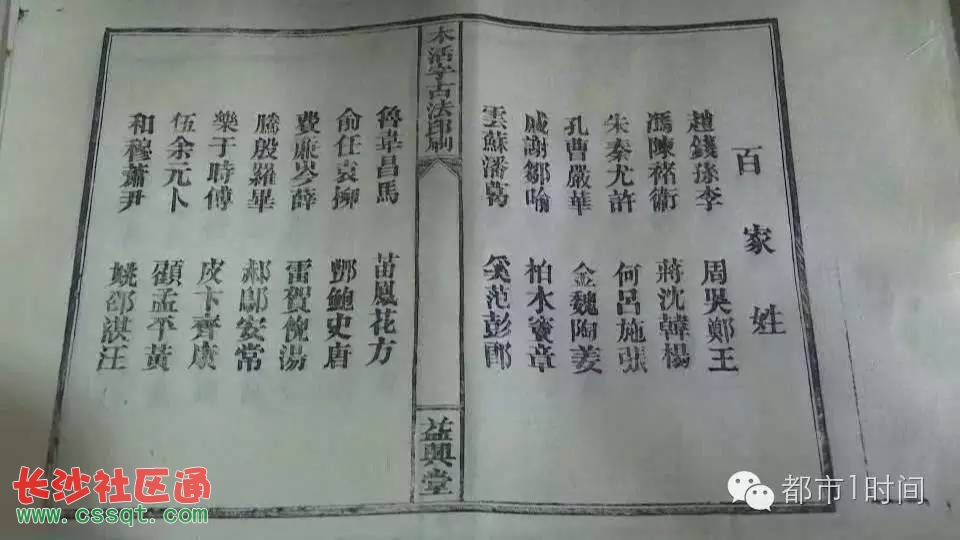 百家姓
趙錢孫李 周吳鄭王
馮陳褚衛 蔣沈韓楊
朱秦尤許 何呂施張
孔曹嚴華 金魏陶姜
戚謝鄒喻 柏水竇章
雲蘇潘葛 奚范彭郎
木活字古法印刷
益興堂
魯韋昌馬 苗鳳花方
俞任袁柳 酆鮑史唐
費廉岑薛 雷賀倪湯
滕殷羅畢 郝鄔安常
樂于時傅 皮卞齊康
伍余元卜 顧孟平黃
和穆蕭尹 姚邵湛汪
长沙社区通
www.cssqt.com
都市1时间